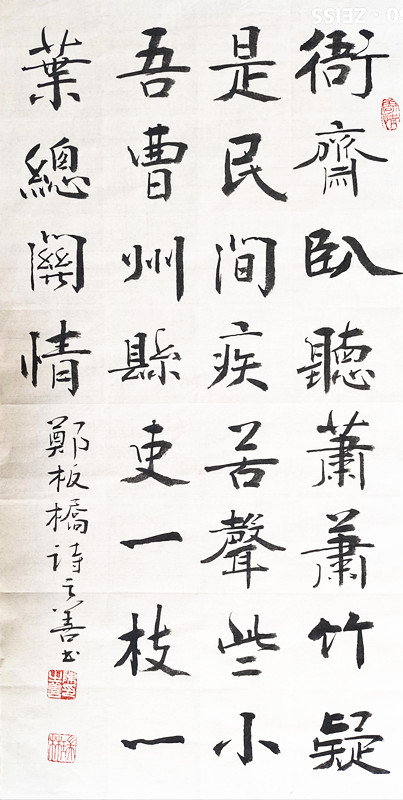 衙齋臥聽蕭蕭竹疑
是民间疾苦聲些小
吾曹州縣吏一枝一
葉總関情
鄭板橋诗之善书
ZEISS